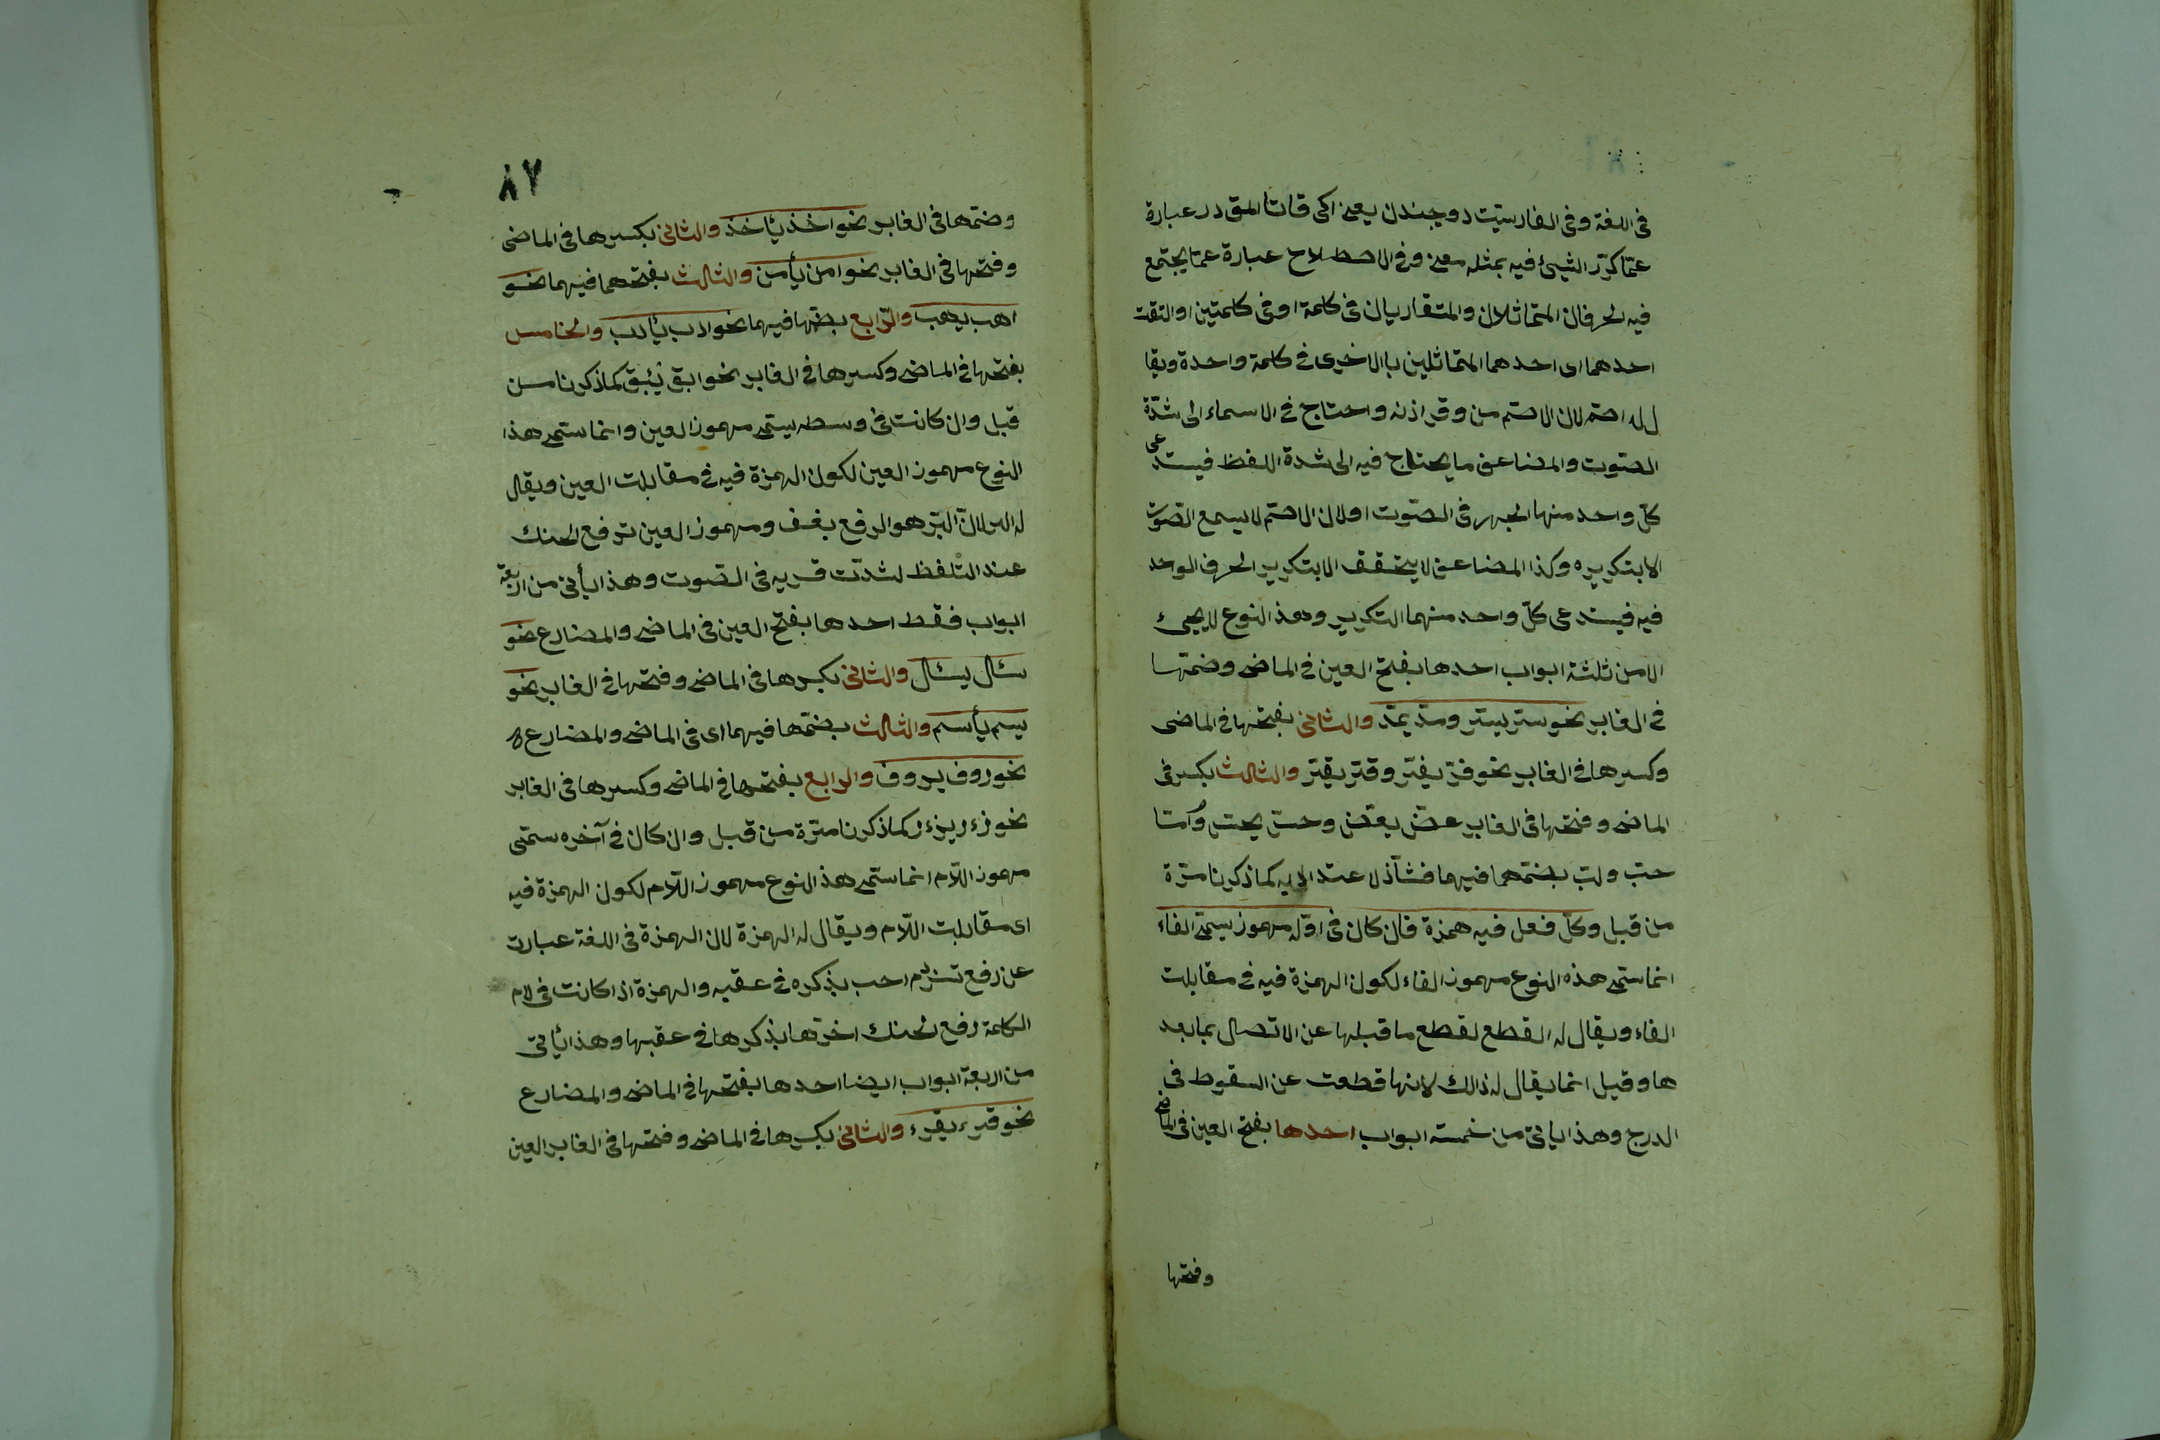 فى اللغة وفى الفارسيّت دوچندن يعنى اكى قات المق در عبارة
عمّا كرّر الشيئ فيه بمثله معنى وفى الاصطلاح عبارة عمّا يجتمع
فيه الحرفان المتماثلان والمتقاربان فى كلمة او فى كلمتين او التقت
احدهما اى احدهما المتماثلين باالاخرى فى كلمة واحدة ويقا
ل له اصم لان الاصم من وقر اذنه واحتاج فى الاسماء الى شدّة
الصّوت والمضاعف ما يحتاج فيه الى شدة اللفظ فيستدعى
كلّ واحد منها الجهر فى الصّوت اولان الاصّم لايسمع الصّوت
الا بتكريره وكذا المضاعف لا يتحقق الا بتكرير الحرف الواحد
فيه فيستدعى كلّ واحد منهما التكرير وهذ النوع لا يجيئ
الا من ثلثة ابواب احدها بفتح العين فى الماضى وضمّها
فى الغابر نحو ستر يستر ومدّ يمدّ والثانى بفتحها فى الماضى
وكسرها فى الغابر نحو فرّ يفرّ وقتر يقتر والثالث بكسر فى
الماضى وفتحها فى الغابر عضّ يعضّ وحسّ يحسّ وامّا
حبّ ولبّ بضمّهما فيهما فشآذ لا عتد اليه كما ذكرنا مرّة
من قبل وكلّ فعل فيه همزة فان كان فى اوّله مهموز يسمّى الفاء
انما سمّى هذه النوع مهموز الفاء لكون الهمزة فيه فى مقابلت
الفاء ويقال له القطع لقطع ما قبلها عن الاتصال بما بعد
ها وقيل انما يقال له ذالك لانها قطعت عن السقوط فى
الدرج وهذا ياتى من خمسة ابواب احدها بفتح العين فى الماضى
وفتحها
٨٧
وضمّها فى الغابر نحو اخذ يأخذ والثانى بكسرها فى الماضى
وفتحها فى الغابر نحو امن يأمن والثالث بفتحهما فيهما نحو
اهب يهب والرّابع بضمّها فيهما نحو ادب يأدب والخامس
بفتحها فى الماضى وكسرها فى الغابر نحو ابق يئبق كما ذكرنا من
قبل وان كانت فى وسطه يسمّى مهموز العين وانما سمّى هذا
النوع مهموز العين لكون الهمزة فيه فى مقابلت العين ويقال
له البر لانّ البّر هو الرفع بغف ومهموز العين ترفع الحنك
عند التلفظ لشدّت قربه فى الصّوت وهذا يأتى من اربعة
ابواب فقط احدها بفتح العين فى الماضى والمضارع نحو
سئال يسئال والثانى بكسرها فى الماضى وفتحها فى الغابر نحو
يسم يأسم والثالث بضمّها فيهما اى فى الماضى والمضارع
نحو روف يروف والرابع بفتحها فى الماضى وكسرها فى الغابر
نحو زءر يزءر كما ذكرنا مرّة من قبل وان كان فى آخره سمّى
مهموز اللّام انما سمّى هذ النوع مهموز اللّام لكون الهمزة فيه
اى مقابلت اللّام ويقال له الهمزة لان الهمزة فى اللغة عبارت
عن رفع احب بذكره فى عقبه والهمزة اذا كانت فى لام
الكلمة رفع لحنك اخرها بذكرها فى عقبها وهذا يأتى
من اربعة ابواب ايضا احدها بفتحها فى الماضى والمضارع
نحو قرء يقرء والثانى بكسرها فى الماضى وفتحها فى الغابر العين